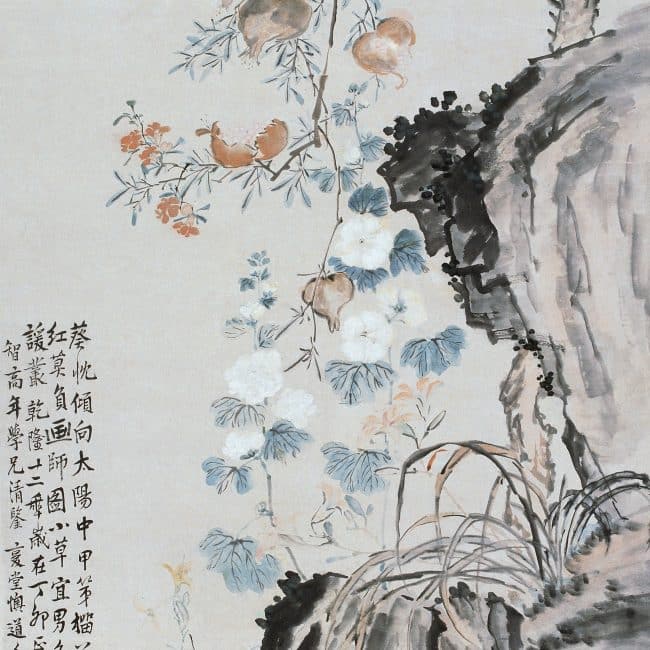 葵忱傾向太陽中甲第榴
紅莫負画師圖小草宜男
諼叢乾隆十二年歲在丁卯
智高年學兄清鑒 复堂懊道